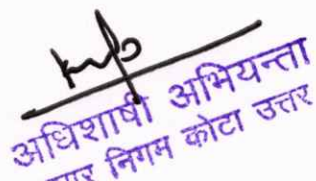 अधिशाषी अभियन्ता
निगम कोटा उत्तर